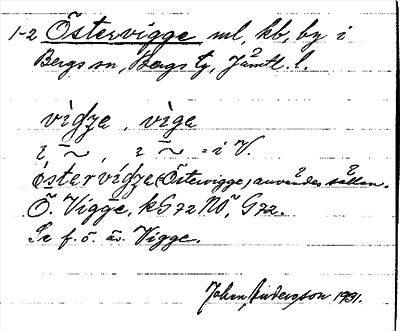 1-2 Östervigge ml, kb, by i
Bergs sn, Bergs tg, Jämtl. l.
vig̑ʒa, vige
i ~, i ~ = i V.
östervigʒa (Östervigge) användes sällan.
Ö. Vigge, kG72NÖ, G72.
Se f. ö. äv. Vigge.
Johan Anderzson 1931.